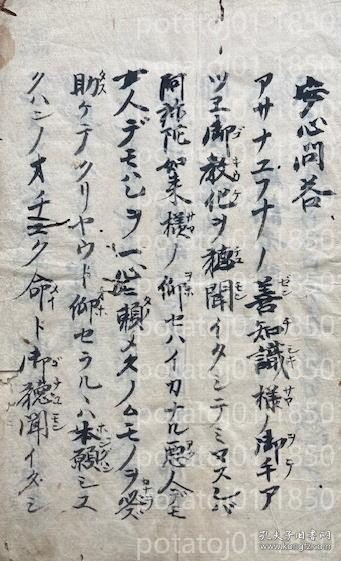 安心問答
アサナユフナノ善知識様ノ御手ア
ツヱ御教化ヲ聴聞イタシテミマスレバ
阿弥陀如来様ノ仰セハイカナル悪人デモ
女人デモハシヲ一心ニ頼メタノムモノヲ必
助ケテクリヤウド仰セラルヽハ本願シヱ
クハンノオチ ク命ド御聴聞イダシ
potatoj01_1850
孔夫子旧书网